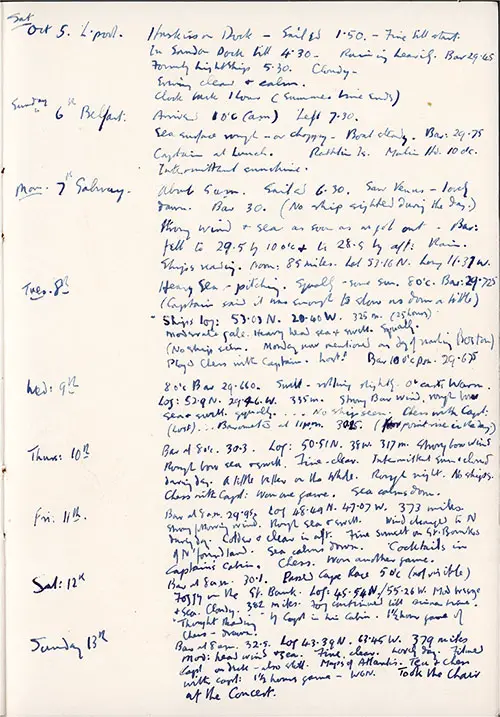 Sat
Oct 5. L'pool. Huskisson Dock - Sailed 1.50. - Fine till start.
In Sandon Dock till 4.30 - Raining heavily. Bar 29.45
Formby Lightships 5.30. Cloudy -
Evening clear & calm.
Clock back 1 hour (Summer time ends)
Sunday 6th Belfast. Arrived 1 o'c (am) Left 7.30.
Sea surface rough - or choppy - Boat steady. Bar: 29.75
Captain at Lunch. Rathlin Is. Malin Hd. 10 o'c.
Intermittent sunshine.
Mon. 7th Galway. About 5 a.m. Sailed 6.30. Saw Venus - lovely
dawn. Bar 30. (No ship sighted during the day.)
Strong wind & sea as soon as we got out - Bar:
fell to 29.5 by 10 o'c & to 28.5 by aft: Rain.
Ship's reading. Noon: 85 miles. Lat 53.16 N. Long 11.37 W.
Tues. 8th Heavy Sea - pitching. Squally - some sun. 8 o'c. Bar: 29.725
(Captain said it was enough to slow us down a little)
"Ship's Log: 53.03 N. 20.40 W. 325 m. (25 hours)
moderate gale. Heavy head sea & swell. Squally.
(No ship seen. Monday now mentioned as day of reading Boston)
Played Chess with Captain. Lost! Bar 10 o'c pm. 29.675
Wed: 9th 8 o'c Bar 29.660. Swell - rolling slightly. Warm.
Log: 52.9 N. 29.46 W. 335 m. Strong Bar wind, rough bow
sea & swell. squally. . . . . No ship seen. Chess with Capt:
(Lost) . . . Barometer at 11 pm. (point rise in the day)
Thurs: 10th Bar at 8 o'c. 30.3. Log: 50.51 N. 38 W. 317 m. Strong bow wind
Rough bow sea & swell. Fine - clear. Intermittent sun & cloud
during day. A little better on the whole. Rough night. No ships.
Chess with Capt: Won one game. Sea calms down.
Fri: 11th. Bar at 8 a.m. 29.95. Log 48.49 N. 47.07 W. 373 miles
Strong wind. Rough sea & swell. Wind changed to N
during day. Colder & clear in aft. Fine Sunset on Gt. Banks
of N'foundland. Sea calms down. 'Cocktails in
Captain's Cabin. Chess. Won another game.
Sat: 12th Bar at 8 am. 30.1. Passed Cape Race 5 o'c (not visible)
Foggy on the Gt. Bank. Log: 45.54 N / 55.26 W. Mod breeze
& sea. Cloudy. 382 miles. Fog continued till dinner time.
'Thought Reading' by Capt in his Cabin. 1½ hours game of
Chess - Drawn.
Sunday 13th Bar at 8 am. 32.5. Log 43.39 N. 63.45 W. 379 miles
Mod: head wind & sea. Fine, clear. Lovely day. Filmed
Capt on deck - also still. Maps of Atlantis. Tea & chess
with capt: 1½ hours game - WON. Took the Chair
at the Concert.